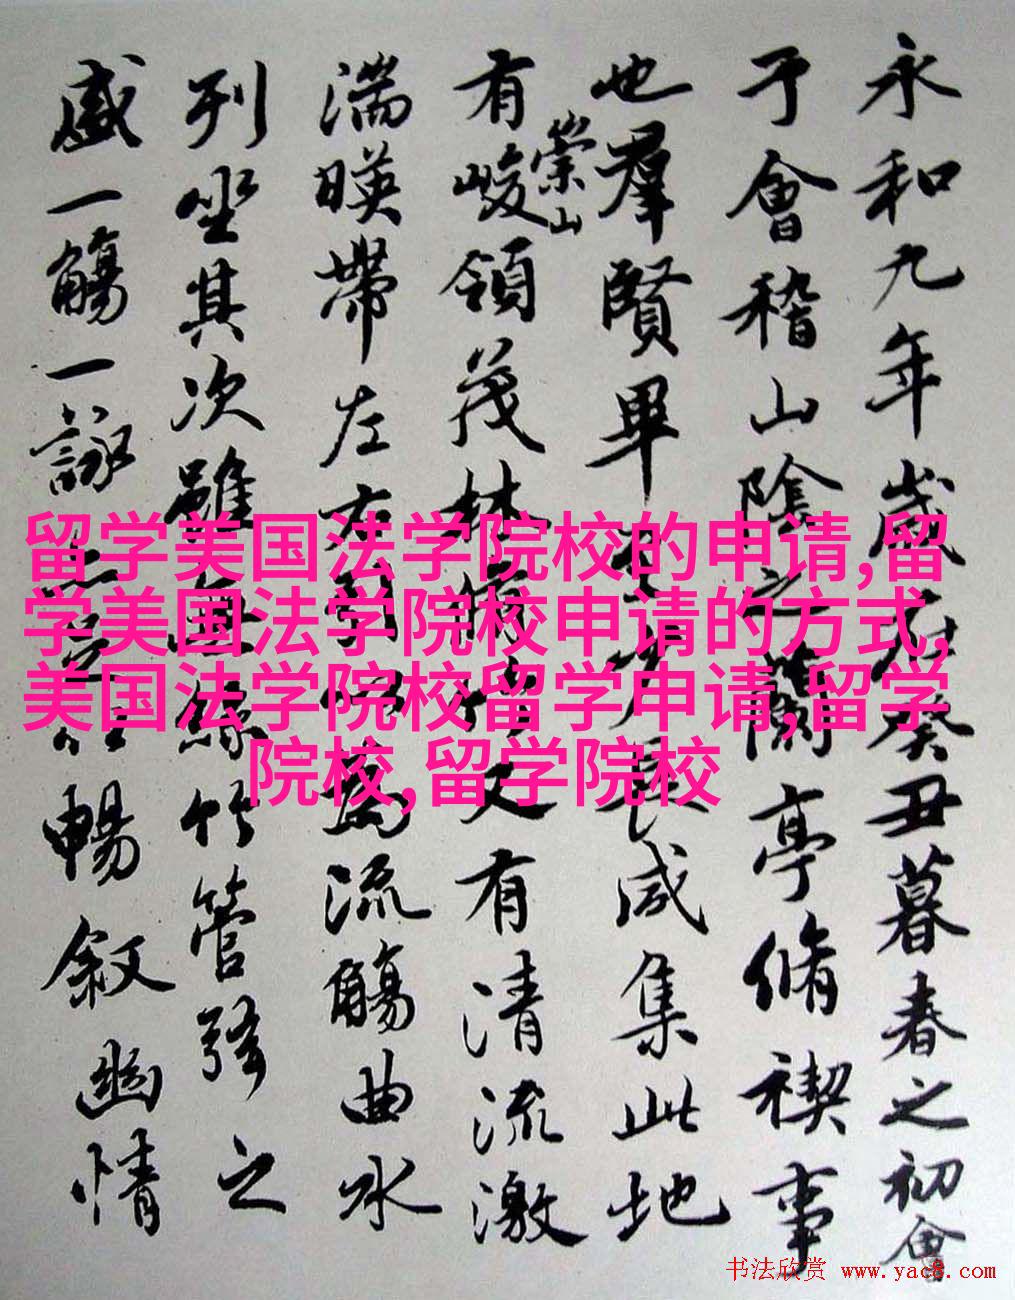 永和九年歲在癸丑暮春之初會
于會稽山陰之蘭亭脩禊事
也羣賢畢至少長咸集此地
有崇山峻領茂林脩竹又有清流激
湍暎帶左右引以為流觴曲水
列坐其次雖無絲竹管弦之
盛一觴一詠亦足以暢敘幽情
留学美国法学院校的申请,留
学美国法学院校申请的方式,
美国法学院校留学申请,留学
院校,留学院校
书法欣赏 www.yac8.com